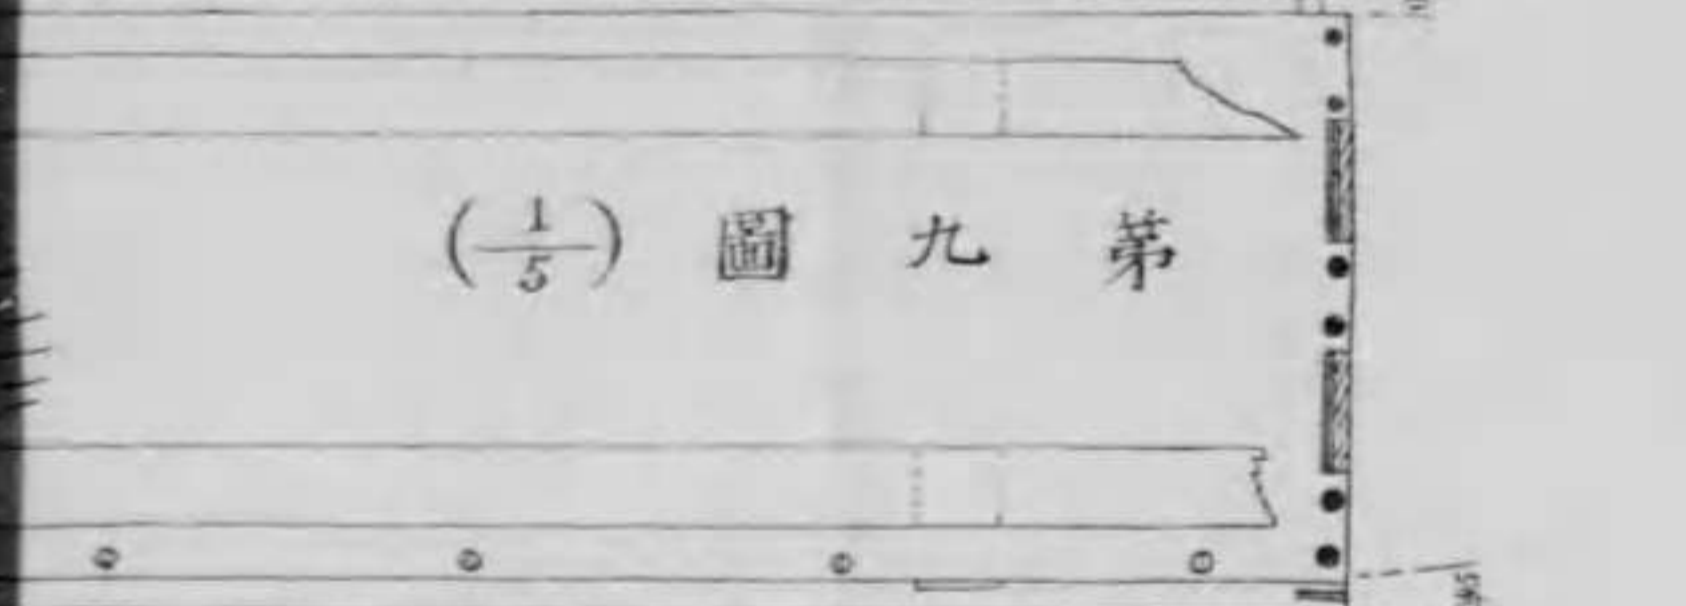 第九圖(1/5)